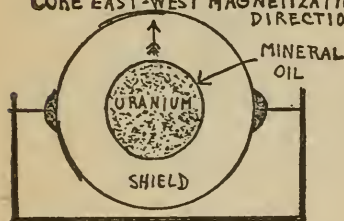 CORE EAST-WEST MAGNETIZATI
DIRECTIO
MINERAL
OIL
URANIUM
SHIELD